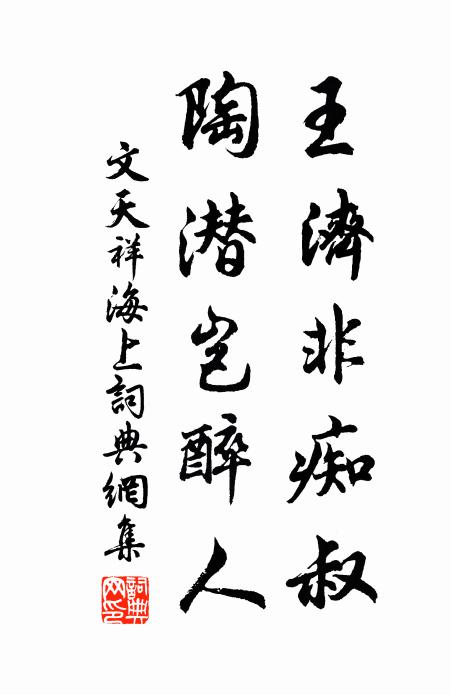 王濟非痴叔
陶潜岂醉人
文天祥海上詞典網集
詞典網印